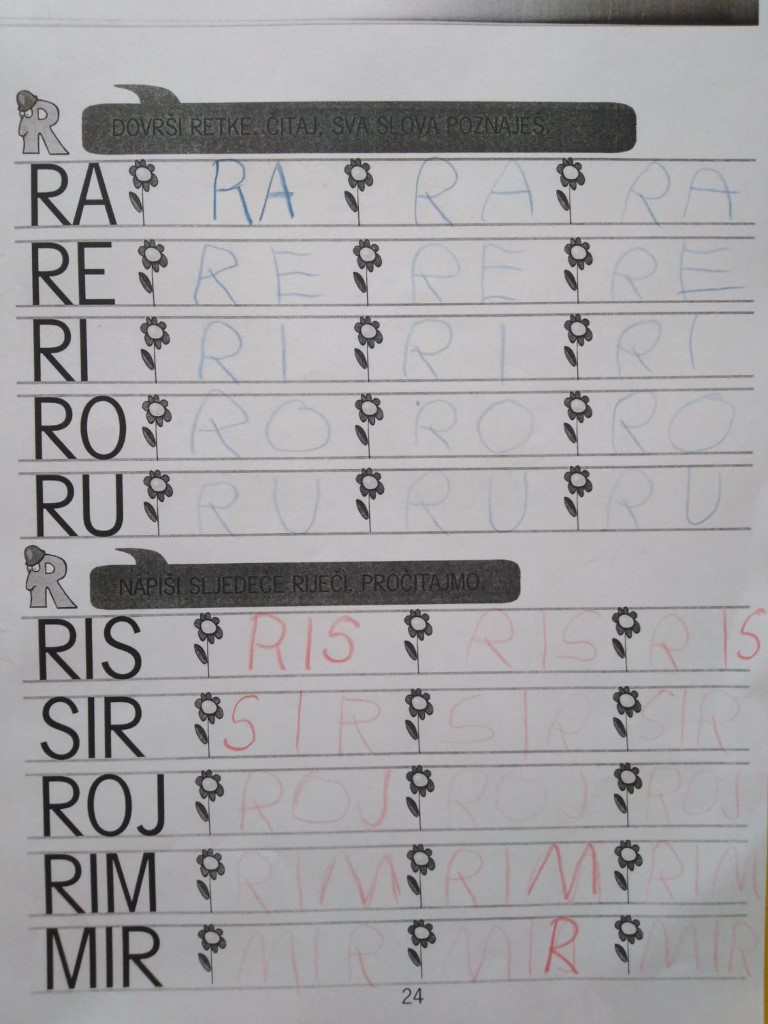 DOVRŠI RETKE. ČITAJ, SVA SLOVA POZNAJEŠ.
RA RA RA RA
RE RE RE RE
RI RI RI RI
RO RO RO RO
RU RU RU RU
NAPIŠI SLJEDEĆE RIJEČI. PROČITAJMO.
RIS RIS RIS RIS
SIR SIR SIR SIR
ROJ ROJ ROJ ROJ
RIM RIM RIM RIM
MIR MIR MIR MIR
24